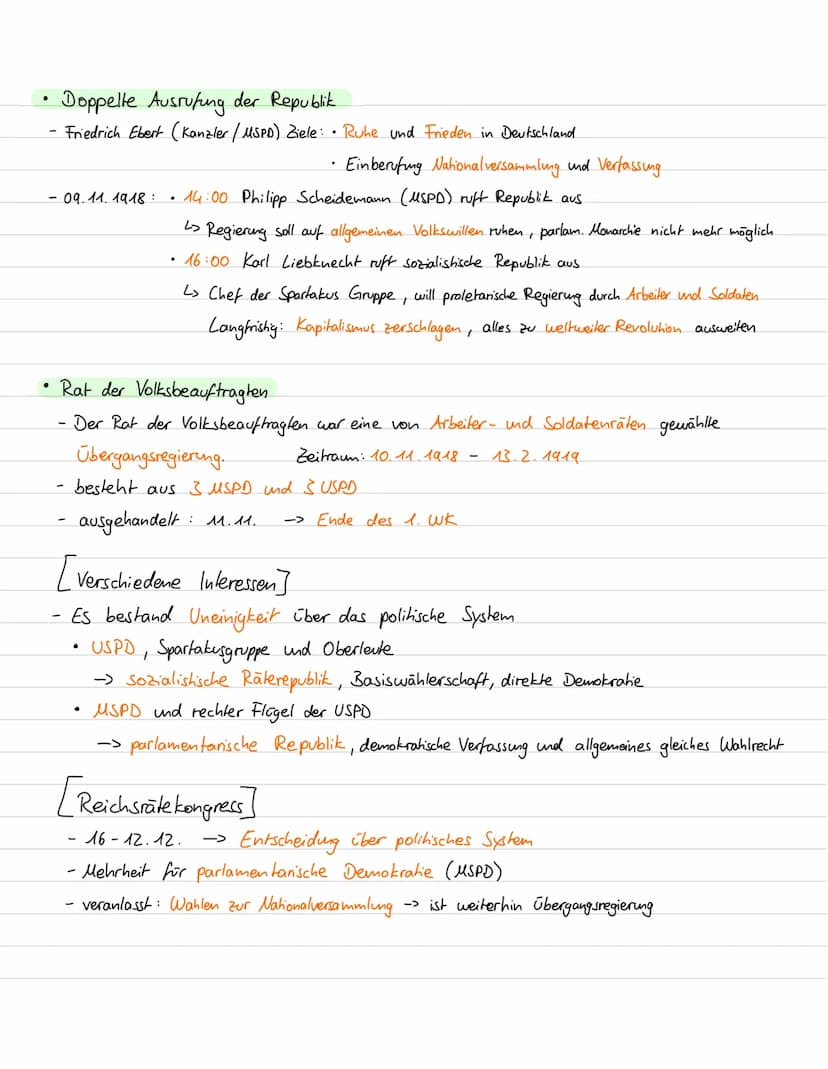 • Doppelte Ausrufung der Republik
- Friedrich Ebert (Kanzler / MSPD) Ziele: • Ruhe und Frieden in Deutschland
• Einberufung Nationalversammlung und Verfassung
- 09.11.1918: • 14:00 Philipp Scheidemann (MSPD) ruft Republik aus
↳ Regierung soll auf allgemeinen Volkswillen ruhen, parlam. Monarchie nicht mehr möglich
• 16:00 Karl Liebknecht ruft sozialistische Republik aus
↳ Chef der Spartakus Gruppe, will proletarische Regierung durch Arbeiter und Soldaten
Langfristig: Kapitalismus zerschlagen, alles zu weltweiter Revolution ausweiten
• Rat der Volksbeauftragten
- Der Rat der Volksbeauftragten war eine von Arbeiter- und Soldatenräten gewählte
Übergangsregierung. Zeitraum: 10.11.1918 - 13.2.1919
- besteht aus 3 MSPD und 3 USPD
- ausgehandelt: 11.11. -> Ende des 1. WK
[Verschiedene Interessen]
- Es bestand Uneinigkeit über das politische System
• USPD, Spartakusgruppe und Oberleute
-> sozialistische Räterepublik, Basiswählerschaft, direkte Demokratie
• MSPD und rechter Flügel der USPD
-> parlamentarische Republik, demokratische Verfassung und allgemeines gleiches Wahlrecht
[Reichsrätekongress]
- 16-12.12. -> Entscheidung über politisches System
- Mehrheit für parlamentarische Demokratie (MSPD)
- veranlasst: Wahlen zur Nationalversammlung -> ist weiterhin Übergangsregierung